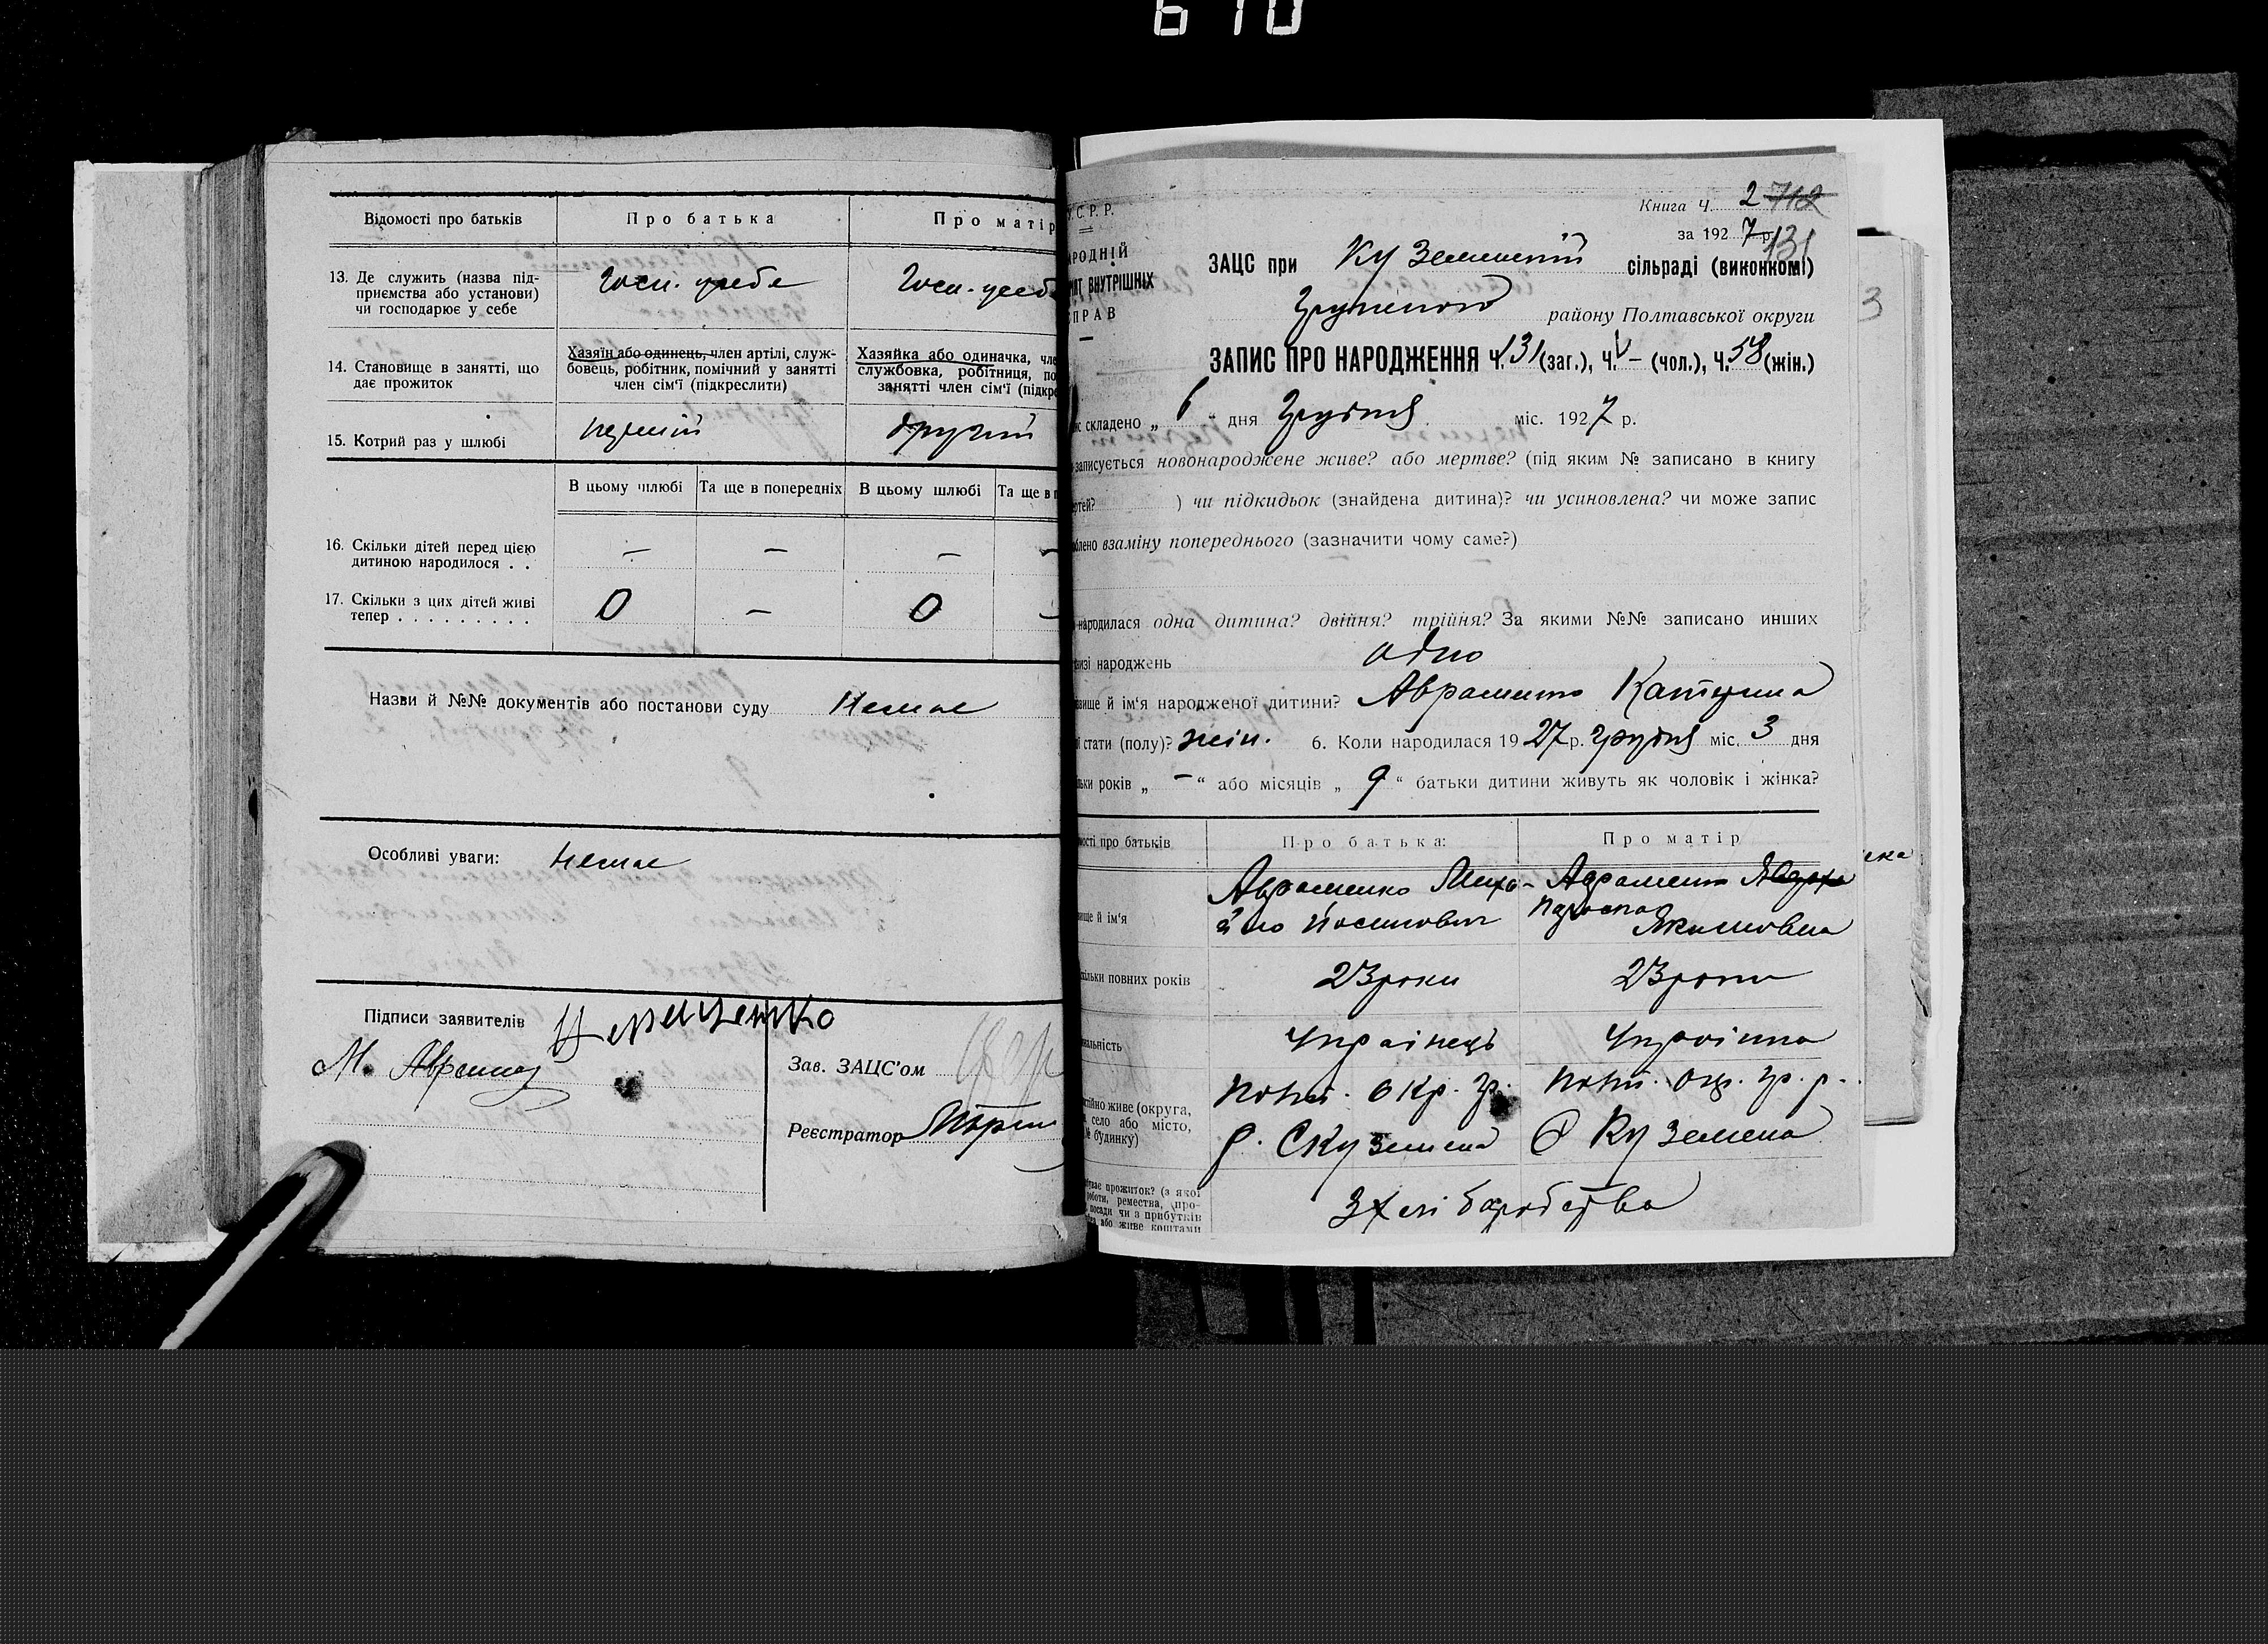 610
Відомості про батьків
Про батька
Про матір
13. Де служить (назва під-
приємства або установи)
чи господарює у себе
Госп. у себе
Госп. у себе
14. Становище в занятті, що
дає прожиток
Хазяїн або одинець, член артілі, служ-
бовець, робітник, помічний у занятті
член сім'ї (підкреслити)
Хазяйка або одиначка, чле
службовка, робітниця, по
занятті член сім'ї (підкре
15. Котрий раз у шлюбі
перший
другий
В цьому шлюбі
Та ще в попередніх
В цьому шлюбі
Та ще в п
16. Скільки дітей перед цією
дитиною народилося . .
— — — —
17. Скільки з цих дітей живі
тепер . . . . . . . . .
0 — 0 —
Назви й №№ документів або постанови суду Немає
Особливі уваги: немає
Підписи заявителів
М. Аврамен
Зав. ЗАЦС'ом
Реєстратор
У.С.Р.Р.
АРОДНІЙ
ЯТ ВНУТРІШНІХ
СПРАВ
Книга Ч. 2 712
за 1927 р. 131
ЗАЦС при Куземинській сільраді (виконкомі)
району Полтавської округи
ЗАПИС ПРО НАРОДЖЕННЯ Ч. 131 (заг.), Ч. — (чол.), Ч. 58 (жін.)
ис складено „ 6 " дня Грудня міс. 1927 р.
записується новонароджене живе? або мертве? (під яким № записано в книгу
ертей? ) чи підкидьок (знайдена дитина)? чи усиновлена? чи може запис
облено взаміну попереднього (зазначити чому саме?)
народилася одна дитина? двійня? трійня? За якими №№ записано инших
книзі народжень одно
звище й ім'я народженої дитини? Авраменко Катерина
ї стати (полу)? жін. 6. Коли народилася 1927 р. грудня міс. 3 дня
льки років „ — " або місяців „ 9 " батьки дитини живуть як чоловік і жінка?
мості про батьків
Про батька:
Про матір
вище й ім'я
Авраменко Миха-
йло Йосипович
Авраменко
Якимовна
кільки повних років
23 роки
23 роки
нальність
Українець
Українка
стійно живе (округа,
село або місто,
№ будинку)
Полт. окр. Гр.
р. С Куземена
Полт. окр. Гр. р.
С Куземена
уває прожиток? (з якої
роботи, ремества, про-
посади чи з прибутків
або живе коштами
З хліборобства
3